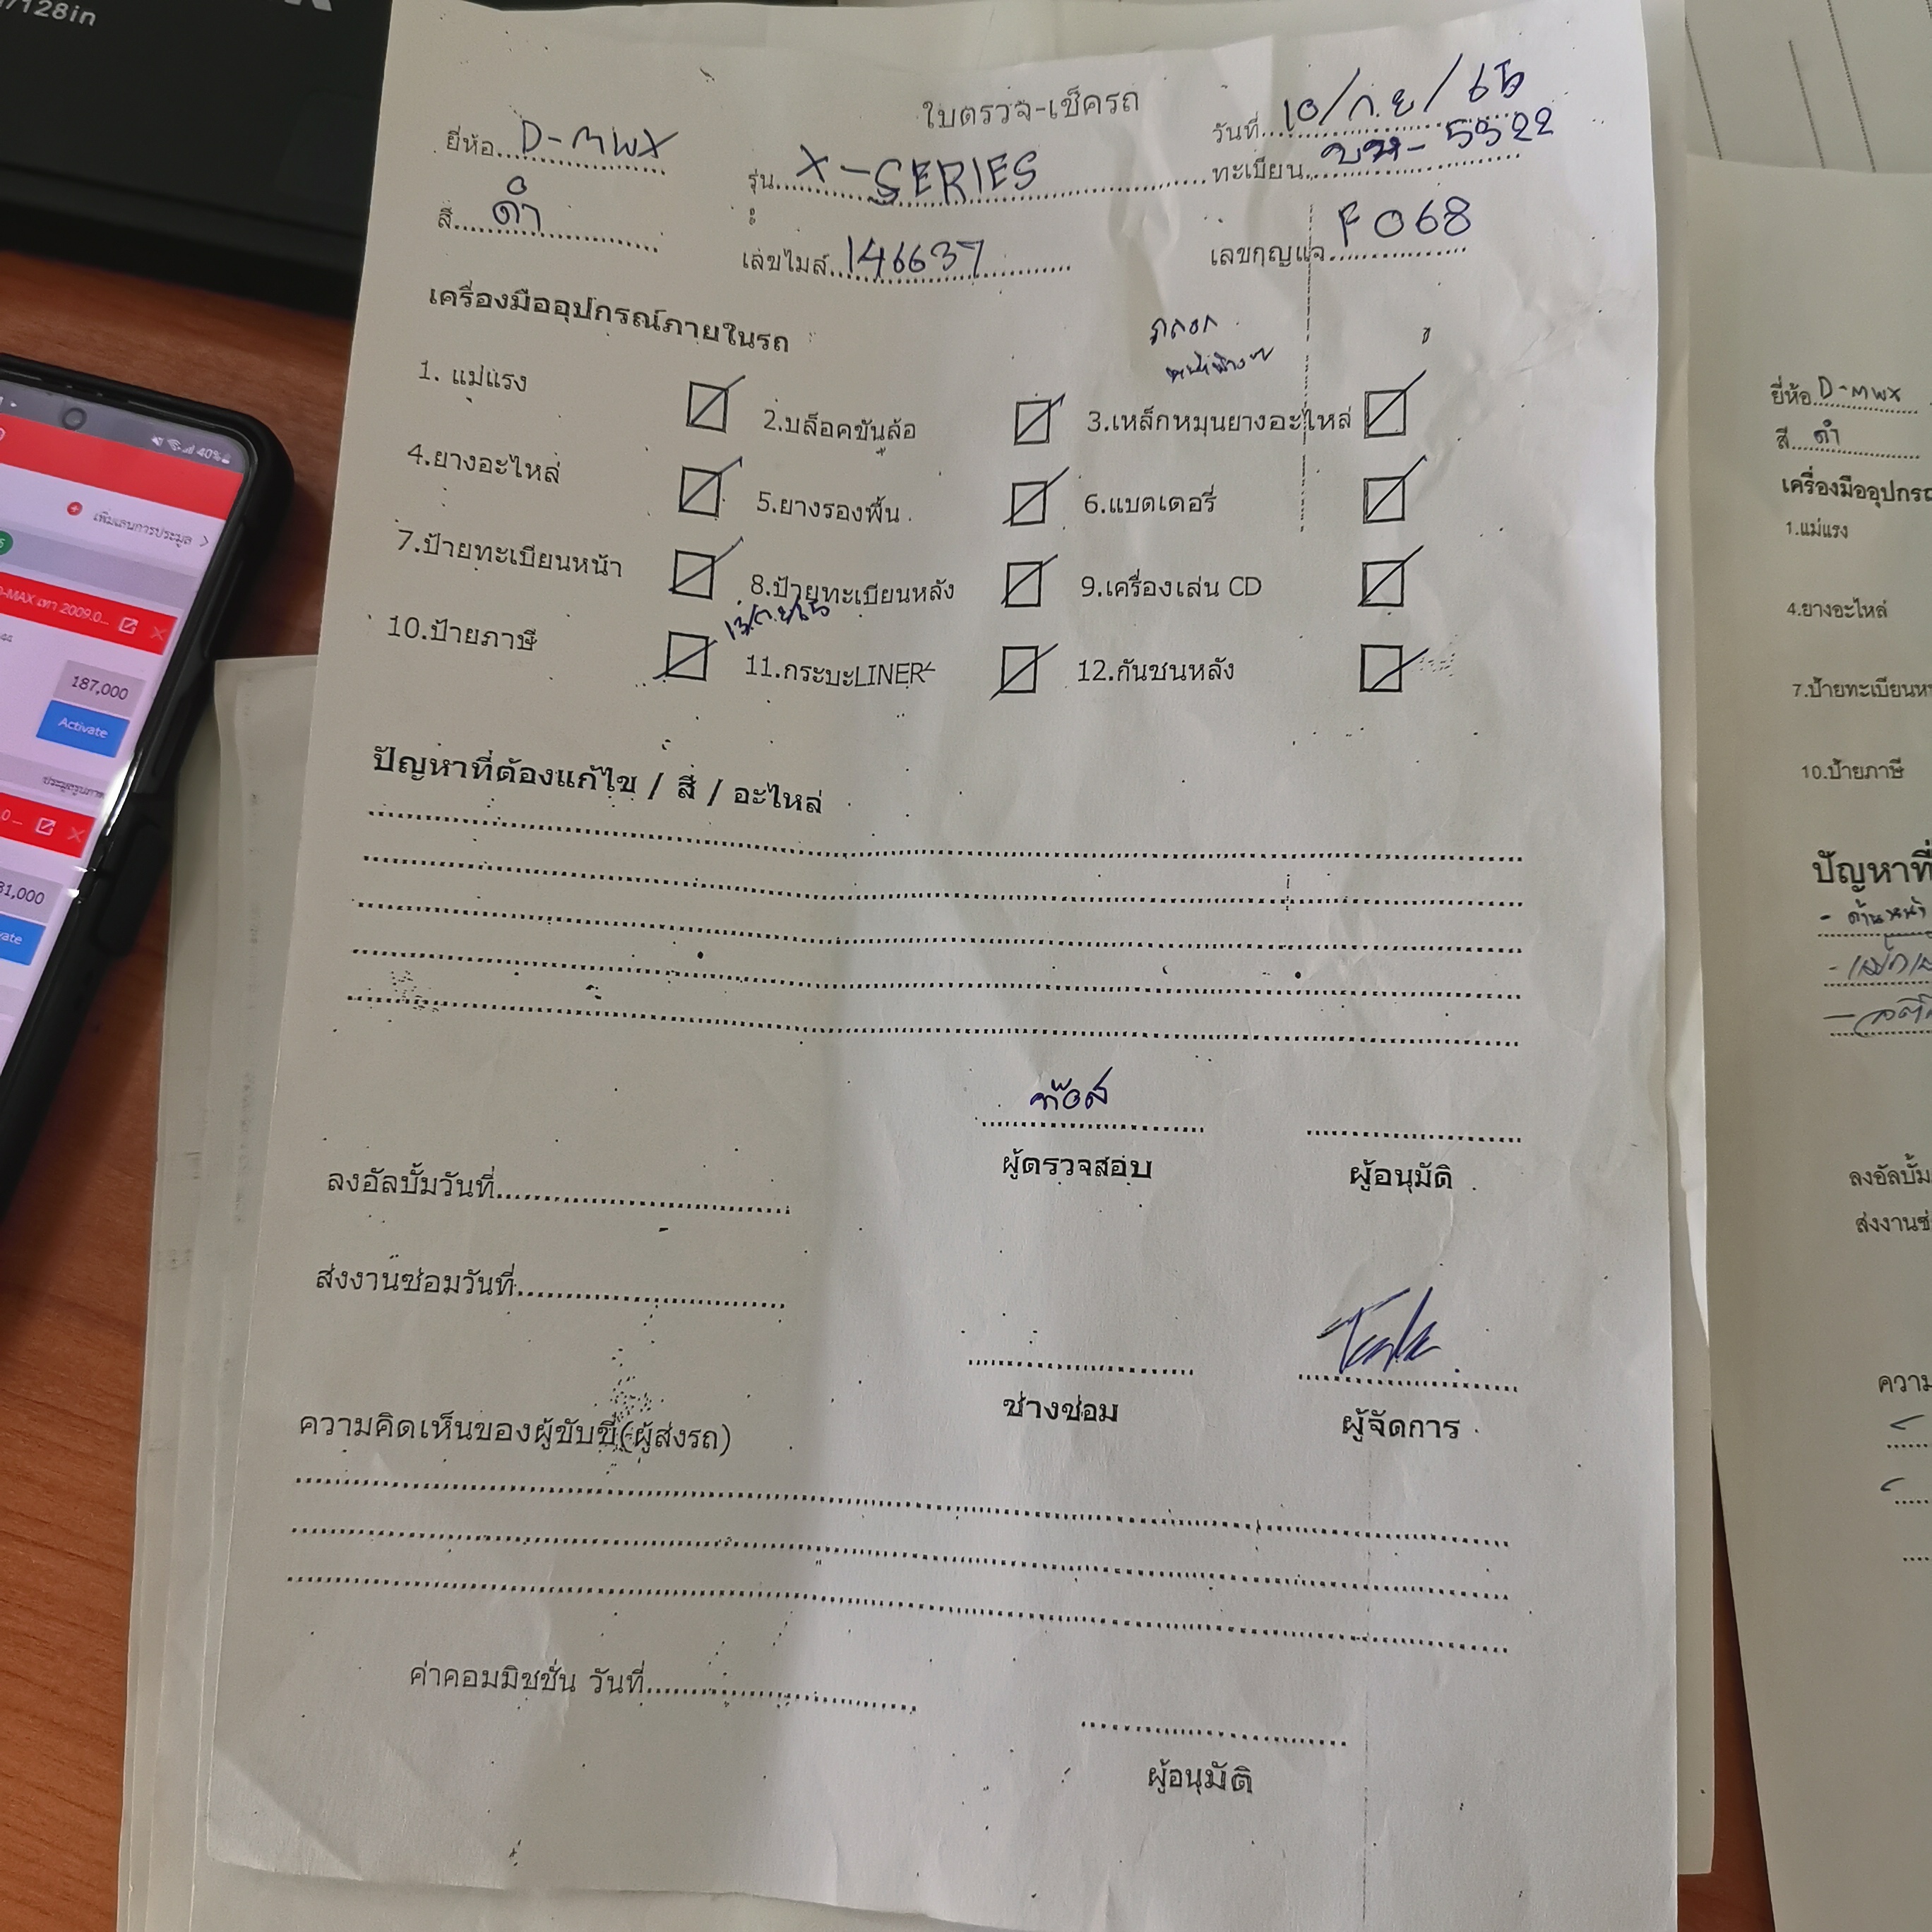 /128in
ใบตรวจ-เช็ครถ
วันที่ 10/ก.ย/65
ยี่ห้อ D-MWX
รุ่น X-SERIES
ทะเบียน 5522
สี ดำ
เลขไมล์ 146637
เลขกุญแจ F068
เครื่องมืออุปกรณ์ภายในรถ
1. แม่แรง 2.บล็อคขันล้อ 3.เหล็กหมุนยางอะไหล่
4.ยางอะไหล่ 5.ยางรองพื้น 6.แบตเตอรี่
7.ป้ายทะเบียนหน้า 8.ป้ายทะเบียนหลัง 9.เครื่องเล่น CD
10.ป้ายภาษี 11.กระบะLINER 12.กันชนหลัง
ปัญหาที่ต้องแก้ไข / สี / อะไหล่
ผู้ตรวจสอบ ผู้อนุมัติ
ลงอัลบั้มวันที่
ส่งงานซ่อมวันที่
ช่างซ่อม ผู้จัดการ
ความคิดเห็นของผู้ขับขี่(ผู้ส่งรถ)
ค่าคอมมิชชั่น วันที่
ผู้อนุมัติ
40%
เพิ่มแผนการประมูล
D-MAX เทา 2009.0...
187,000
Activate
ประมูลรูปภาพ
.0 ...
31,000
vate
ยี่ห้อ D-MWX
สี ดำ
เครื่องมืออุปกรณ
1.แม่แรง
4.ยางอะไหล่
7.ป้ายทะเบียนห
10.ป้ายภาษี
ปัญหาที่
- ด้านหน้า
ลงอัลบั้ม
ส่งงานซ่
ความ